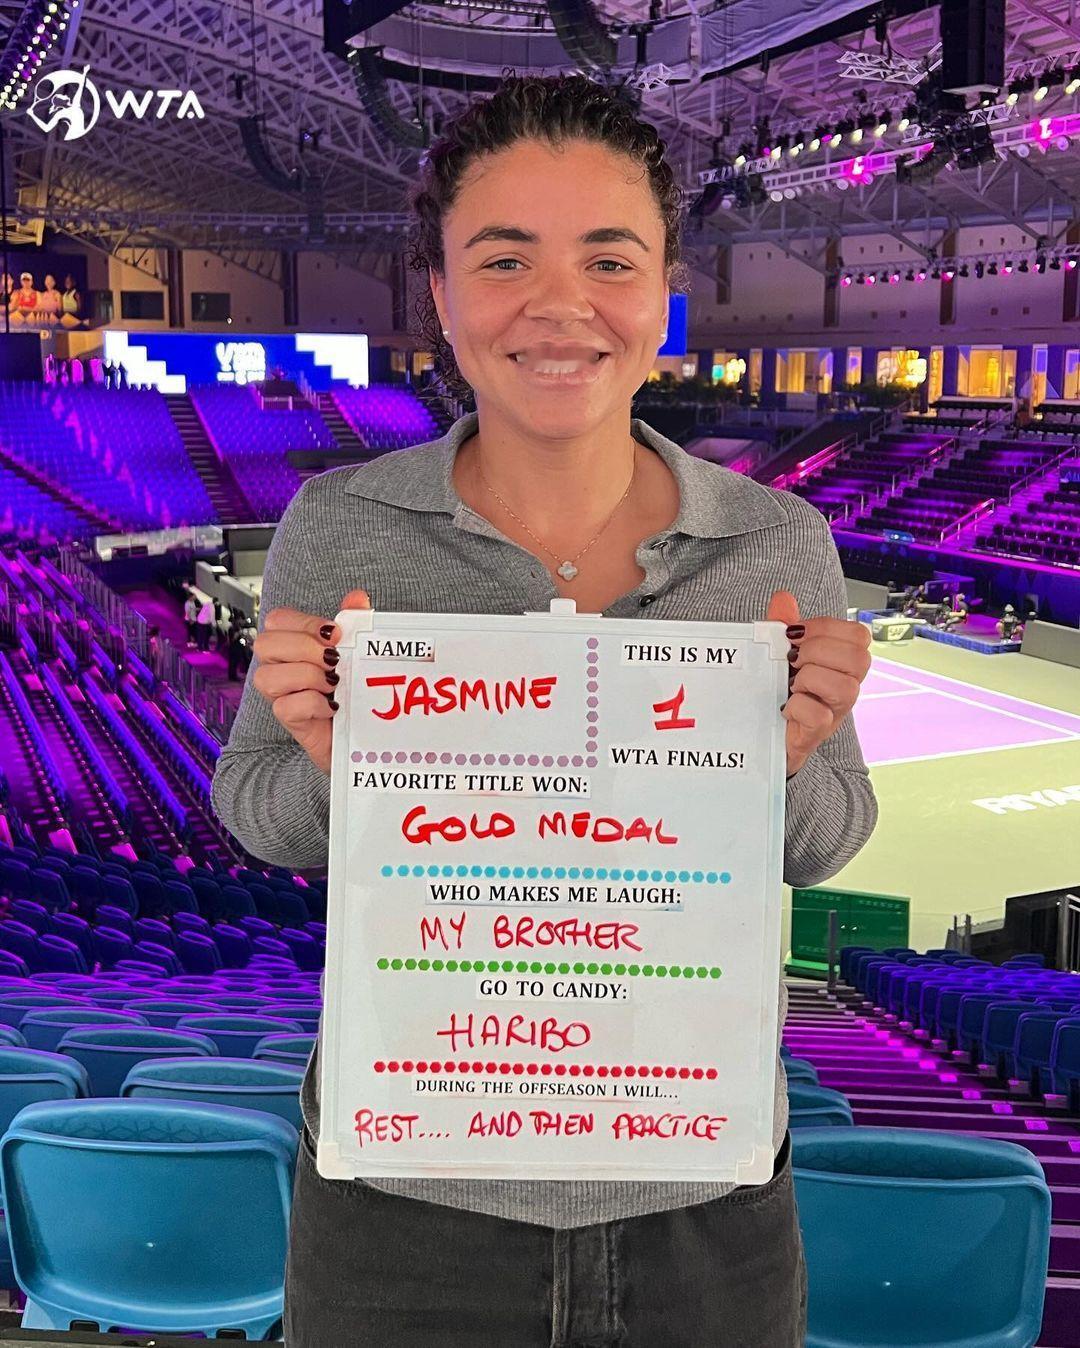 WTA
NAME:
JASMINE
THIS IS MY
1
WTA FINALS!
FAVORITE TITLE WON:
GOLD MEDAL
WHO MAKES ME LAUGH:
MY BROTHER
GO TO CANDY:
HARIBO
DURING THE OFFSEASON I WILL...
REST.... AND THEN PRACTICE